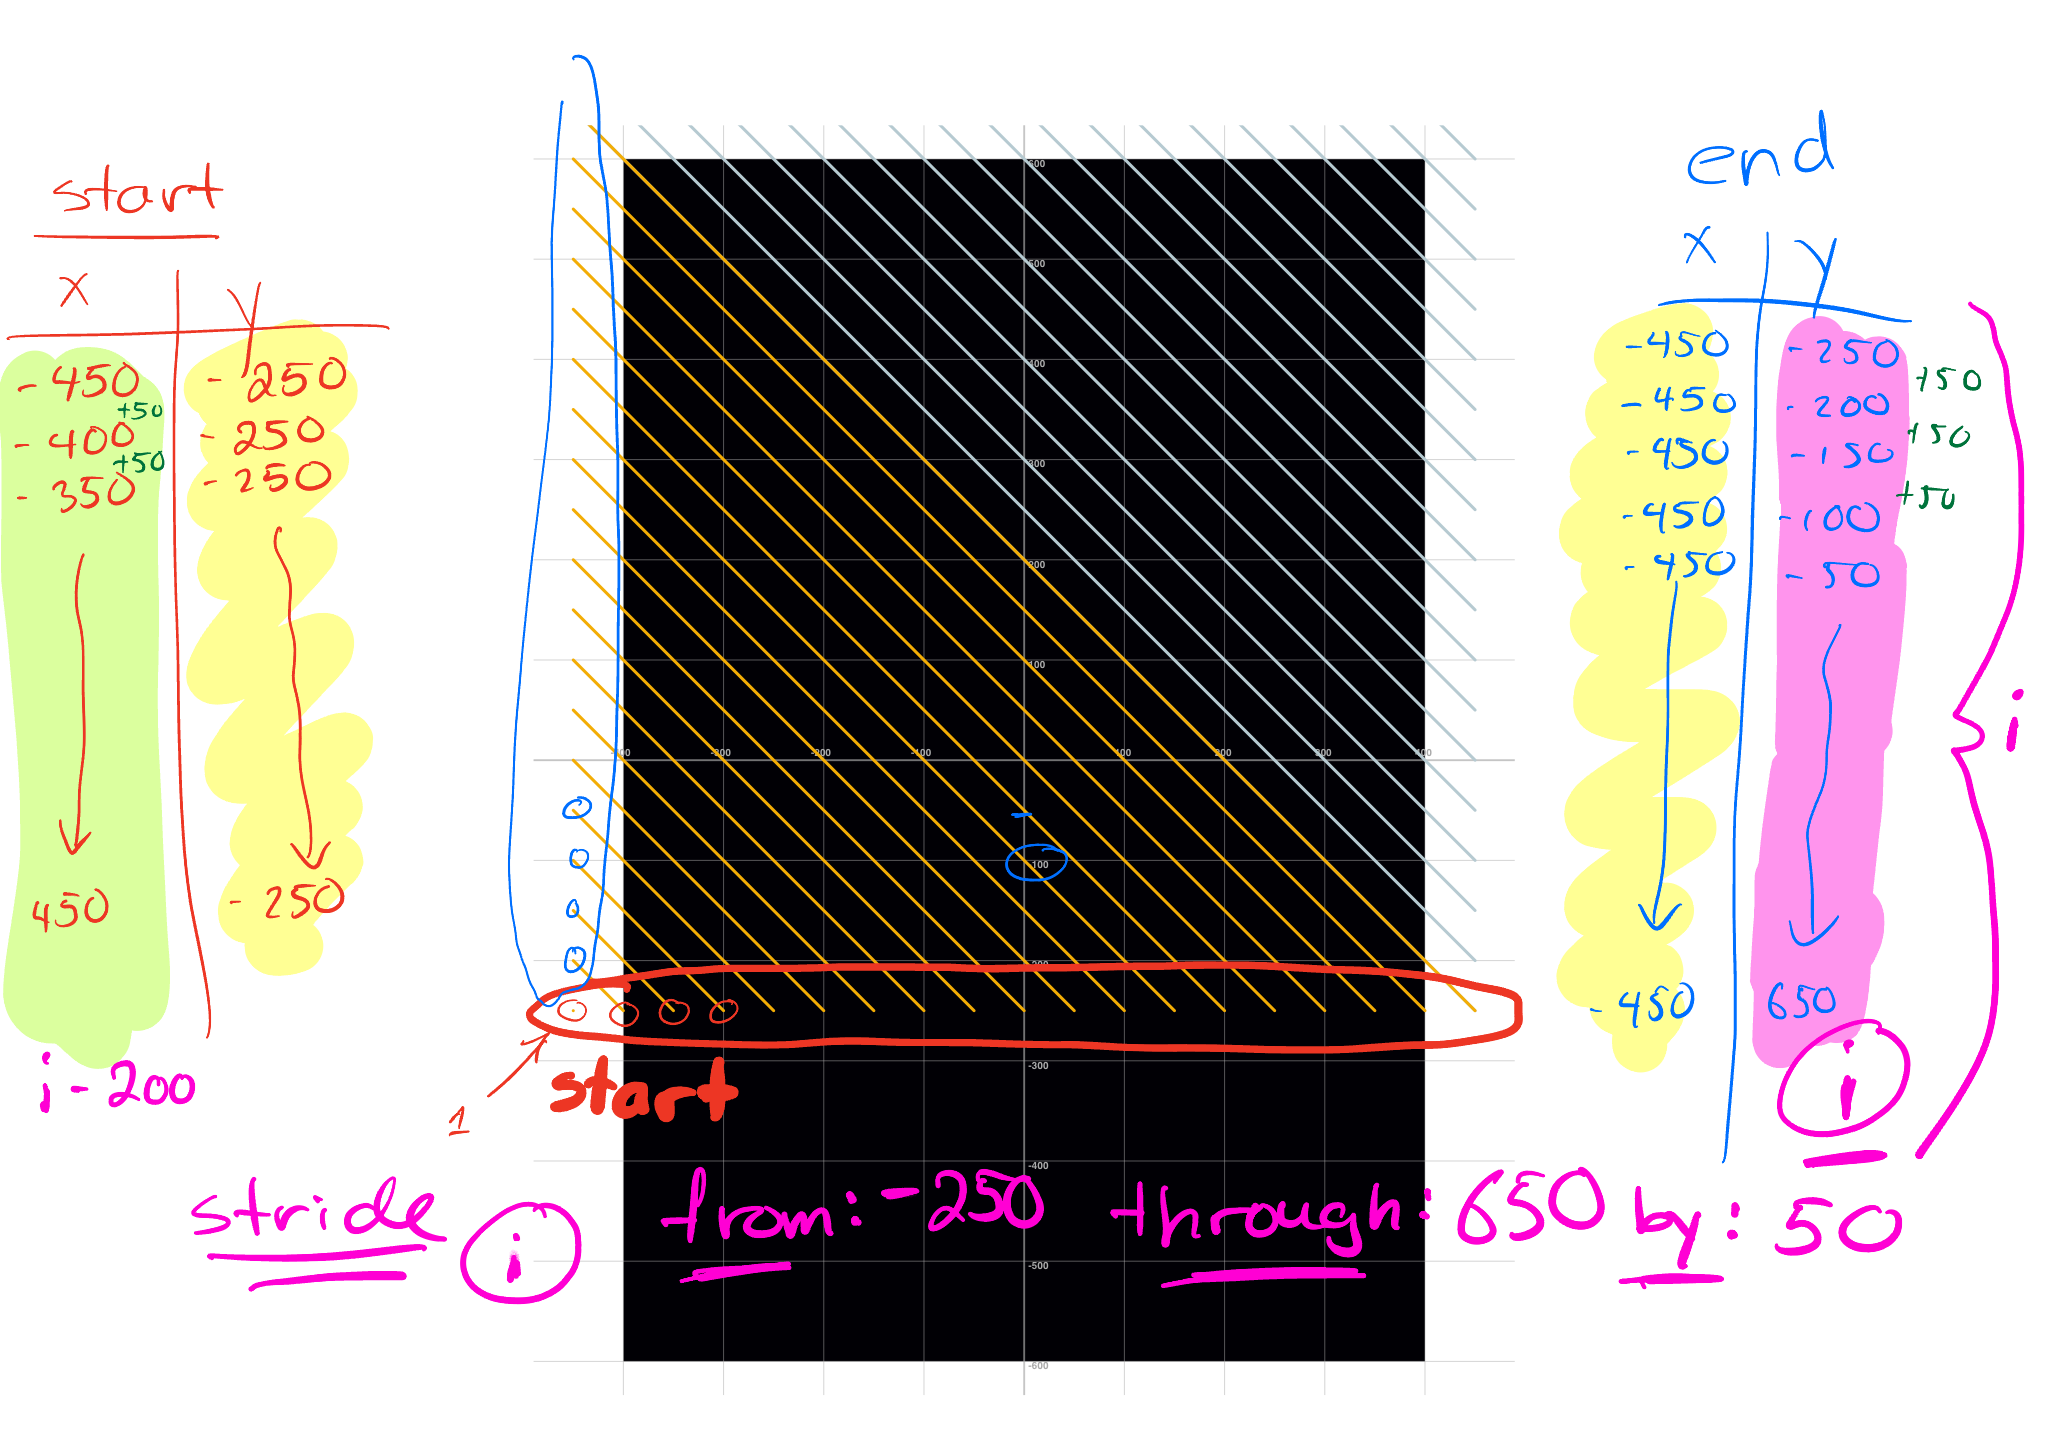 start
x y
-450 -250
+50
-400 -250
+50
-350 -250
450 -250
i-200
600
500
400
300
200
100
-300 -200 100 200 300 400
-100
-200
-300
-400
-500
-600
1
start
end
x y
-450 -250
+50
-450 -200
+50
-450 -150
+50
-450 -100
-450 -50
-450 650
i
i
stride i from: -250 through: 650 by: 50